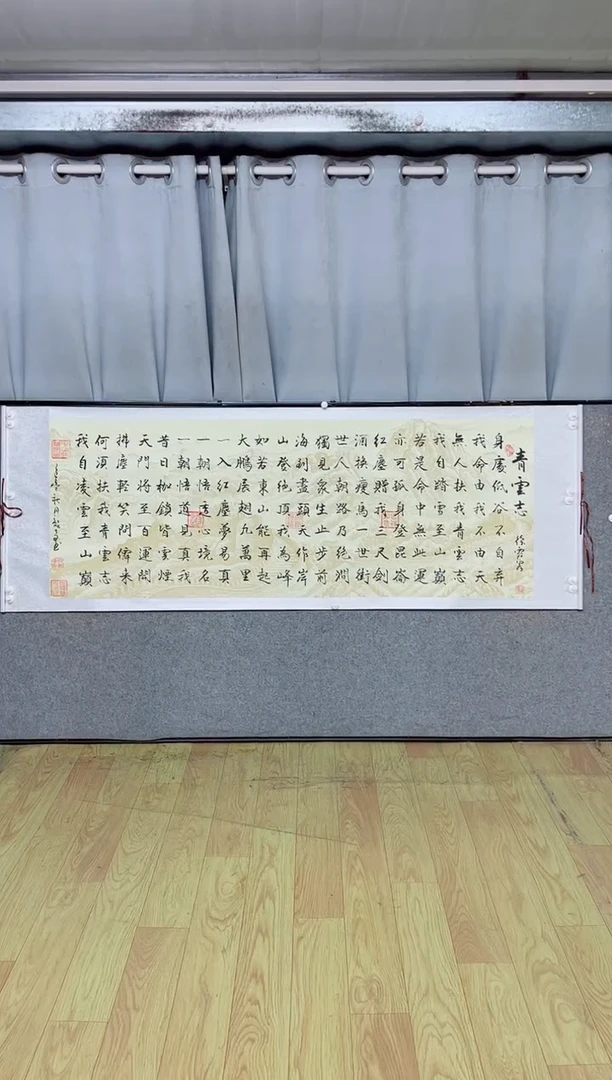 青雲志
徐霞客
身處低谷不自弃
我命由我不由天
無人扶我青雲志
我自踏雪至山巔
若是命中無此運
亦可孤身登昆崙
红塵贈我三尺劍
酒換瘦馬一世街
世人朝路乃绝澗
獨見衆生止步前
海到盡頭天作岸
山登绝頂我為峰
如若東山能再起
大鵬展翅九萬里
一入红塵夢易真
一朝悟透心境名
一朝悟道見真我
昔日枷鎖皆雲煙
天門將至百運開
拂塵輕笑問儒来
何須扶我青雲志
我自凌雲至山巔